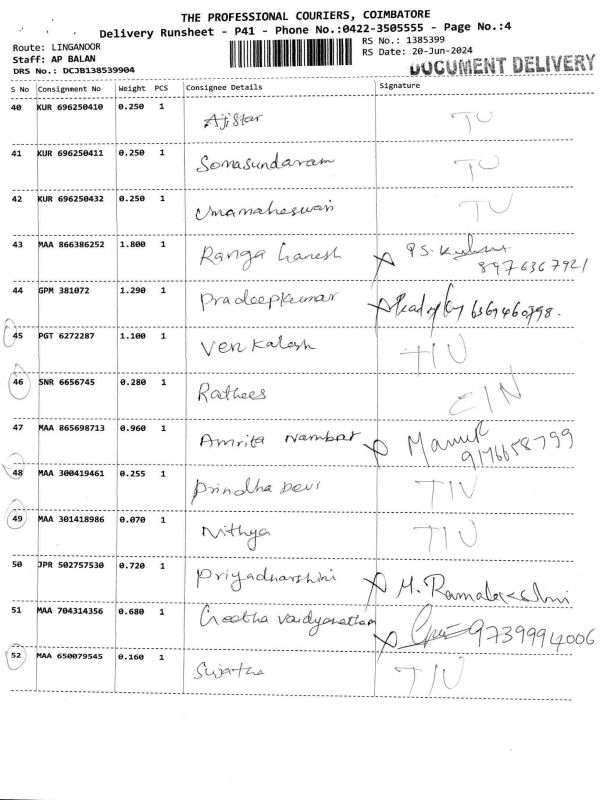 THE PROFESSIONAL COURIERS, COIMBATORE
Delivery Runsheet - P41 - Phone No.:0422-3505555 - Page No.:4
Route: LINGANOOR
RS No.: 1385399
Staff: AP BALAN
RS Date: 20-Jun-2024
DRS No.: DCJB138539904
DOCUMENT DELIVERY
S No Consignment No Weight PCS Consignee Details Signature
40 KUR 696250410 0.250 1 Ajistar TU
41 KUR 696250411 0.250 1 Somasundaram TU
42 KUR 696250432 0.250 1 Umamaheswari TU
43 MAA 866386252 1.800 1 Ranga Ganesh PS.
8976367921
44 GPM 381072 1.290 1 Pradeepkumar 6369460798.
45 PGT 6272287 1.100 1 Venkalesh TIU
46 SNR 6656745 0.280 1 Rathees CIN
47 MAA 865698713 0.960 1 Amrita Nambiar
9176658799
48 MAA 300419461 0.255 1 Prindha Devi TIU
49 MAA 301418986 0.070 1 Nithya TIU
50 JPR 502757530 0.720 1 Priyadharshini M. Ramalakshmi
51 MAA 704314356 0.680 1 Geetha Vaidyanatham 9739994006
52 MAA 650079545 0.160 1 Sujatha TIU